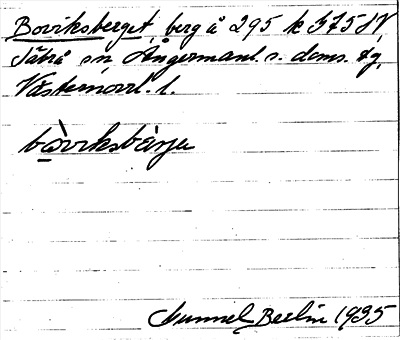 Boviksberget, berg å 295 k 575 SV
Säbrå sn Ångermanl. s. doms. tg,
Västernorrl. l.
bòviksbàrjə
Gunnel Beelin 1935